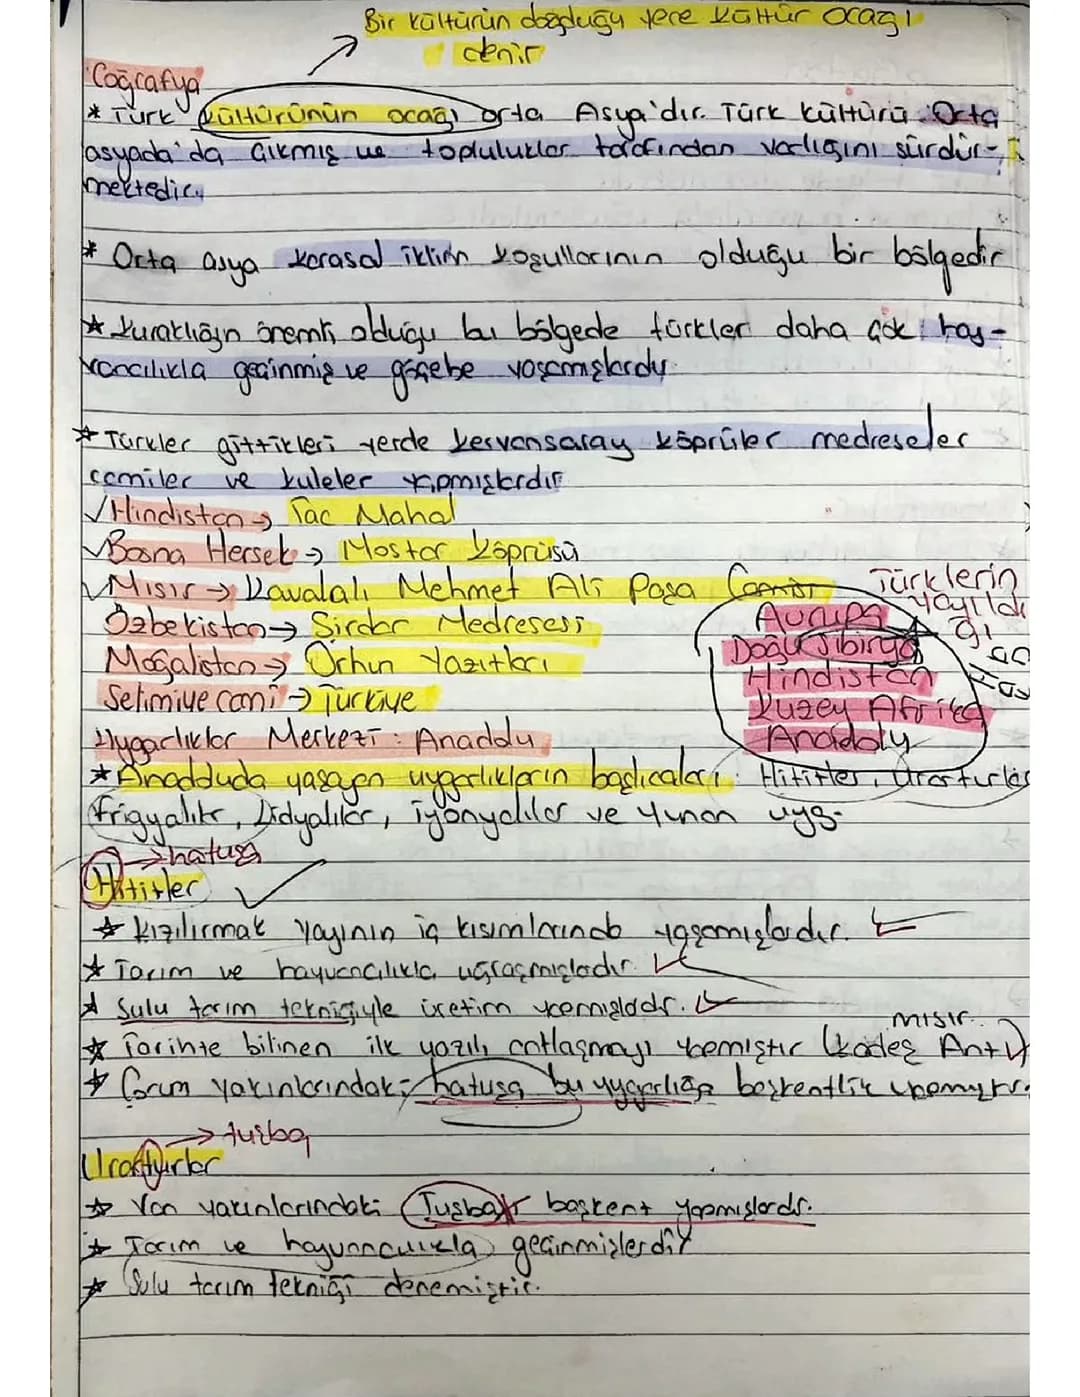 Bir kültürün doğduğu yere kültür ocağı
denir
Coğrafya
* Türk kültürünün ocağı orta Asya'dır. Türk kültürü Orta
asyada'da çıkmış ve topluluklar tarafından varlığını sürdür-
mektedir.
* Orta asya karasal iklim koşullarının olduğu bir bölgedir
* Kuraklığın önemli olduğu bu bölgede türkler daha çok hay-
vancılıkla geçinmiş ve göçebe yaşamışlardır
* Türkler gittikleri yerde kervansaray köprüler medreseler
camiler ve kuleler yapmışlardır
✓ Hindistan → Tac Mahal
✓ Bosna Hersek → Mostar Köprüsü
✓ Mısır → Kavalalı Mehmet Ali Paşa Camisi
Özbekistan → Şirdar Medresesi
Moğalistan → Orhun Yazıtları
Selimiye cami → Türkiye
Türklerin
yayıldı
ğı
Avrupa
Doğu Sibirya
Hindistan
Kuzey Afrika
Anadolu
Uygarlıklar Merkezi: Anadolu
* Anadoluda yaşayan uygarlıkların başlıcaları: Hititler, Urarturlar
frigyalılar, Lidyalılar, iyonyalılar ve Yunan uyg.
→ hatuşa
Hititler
* Kızılırmak yayının iç kısımlarında yaşamışlardır.
* Tarım ve hayvancılıkla uğraşmışladır.
* Sulu tarım tekniğiyle üretim yapmışladır.
mısır
* Tarihte bilinen ilk yazılı antlaşmayı yapmıştır (Kadeş Ant.)
* Çorum yakınlarındaki hatuşa bu uygarlığa başkentlik yapmıştır.
→ tuşba
Urarturlar
* Van yakınlarındaki Tuşbayı başkent yapmışlardır.
* Tarım ve hayvancılıkla geçinmişlerdir
* Sulu tarım tekniği denemiştir.